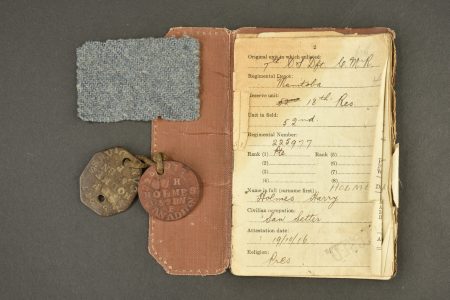 2
Original unit in which enlisted:
7th Dft. C.M.R.
Regimental Depot:
Manitoba
Reserve unit:
18th Res
Unit in field:
52nd.
Regimental Number:
225977
Rank (1) Pte Rank (5)
(2) (6)
(3) (7)
(4) (8)
Name in full (surname first): HOLMES
Holmes Harry
Civilian occupation:
Saw Setter
Attestation date:
19/10/16
Religion:
Pres
H
HOLMES
52 BN
CANADIAN